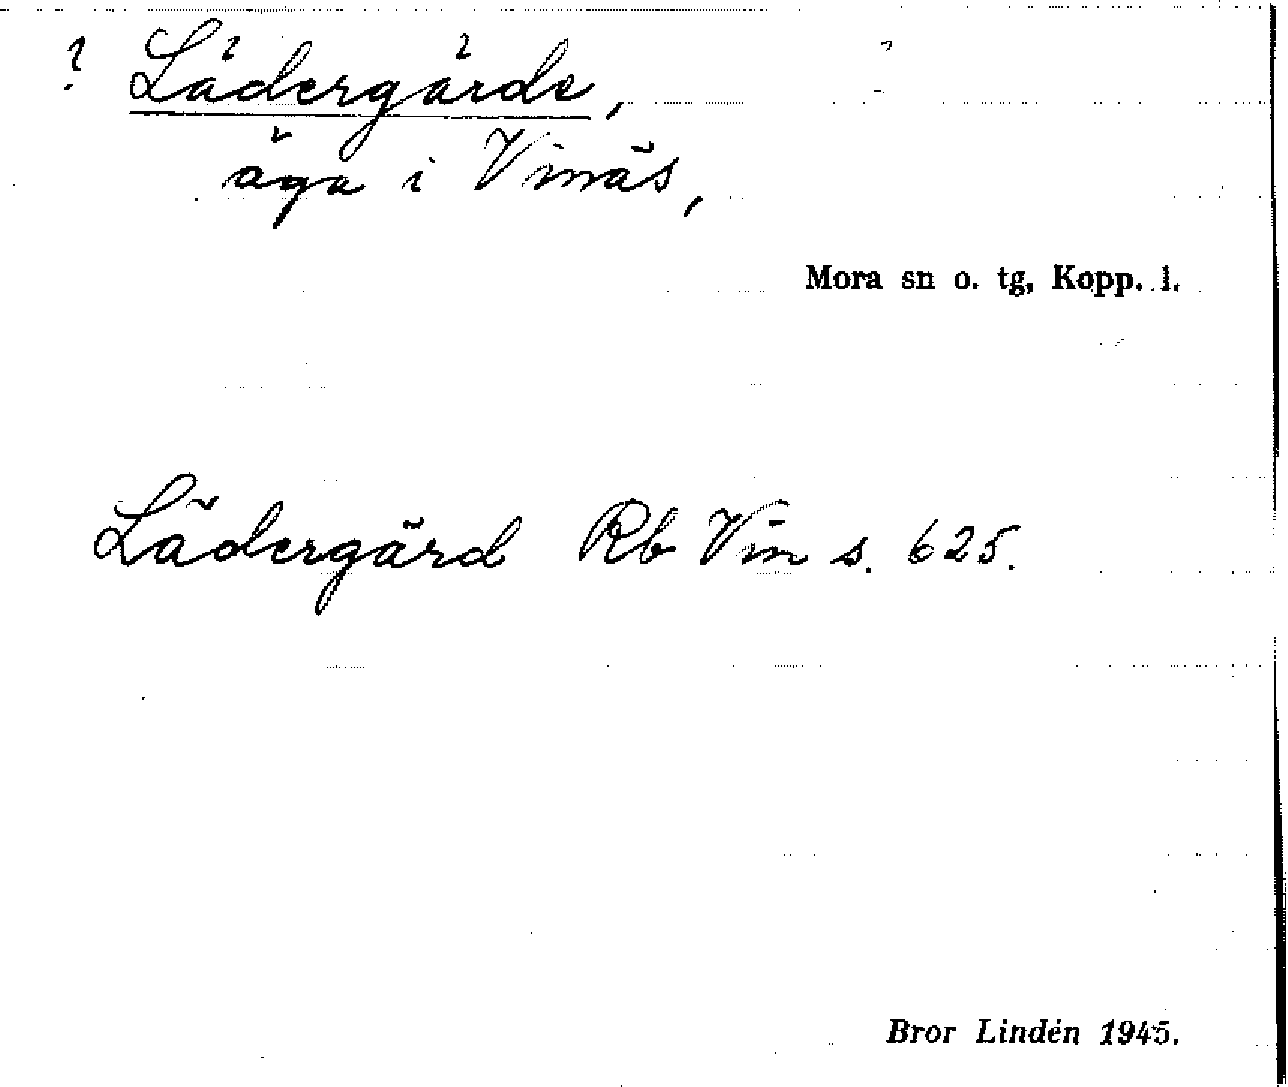 ? Lådergårde,
äga i Vinäs,
Mora sn o. tg, Kopp. l.
Lädergärd Rb Vin s. 625.
Bror Lindén 1945.